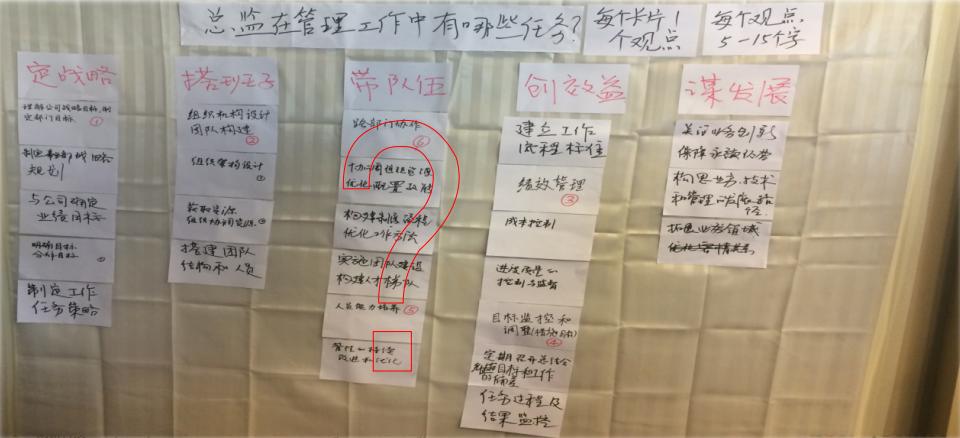 总监在管理工作中有哪些任务?
每个卡片1
个观点
每个观点
5-15个字
定战略
理解公司战略目标,制
定部门目标
①
制定事业部战略
规划
与公司确定
业绩目标
明确目标
分解目标
制定工作
任务策略
搭班子
组织机构设计
团队构建
②
组织架构设计
获取资源
组织协调资源
搭建团队
结构和人员
带队伍
跨部门协作
⑥
优化配置
构建制度流程
优化工作方法
实施团队建设
构建人才梯队
人员能力培养
⑤
改进和优化
创效益
建立工作
流程标准
绩效管理
③
成本控制
进度质量的
控制与监督
目标监控和
调整(措施、目标)
④
定期召开总结会
目标和工作
的偏差
任务过程及
结果监控
谋发展
关注业务创新
保障永续经营
构思业务、技术
和管理的发展路
径
拓展业务领域